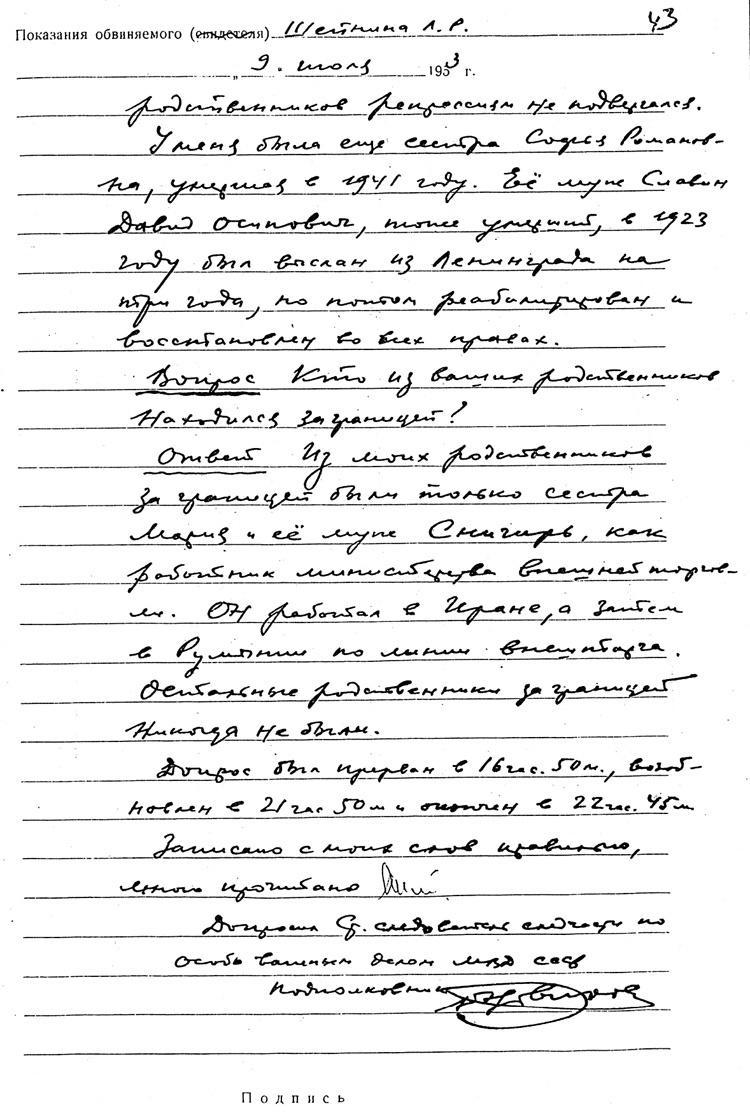 43
Показания обвиняемого (свидетеля) Шейнина Л. Р.
„ 9. июля 1953 г.
родственников репрессиям не подвергался.
У меня была еще сестра Софья Романов-
на, умершая в 1941 году. Её муж Славин
Давид Осипович, тоже умерший, в 1923
году был выслан из Ленинграда на
три года, но потом реабилитирован и
восстановлен во всех правах.
Вопрос Кто из ваших родственников
находился заграницей?
Ответ Из моих родственников
за границей были только сестра
Мария и её муж Снигирь, как
работник министерства внешней торгов-
ли. Он работал в Иране, а затем
в Румынии по линии внешторга.
Остальные родственники за границей
никогда не были.
Допрос был прерван в 16 час. 50 м., возоб-
новлен в 21 час 50 м и окончен в 22 час. 45 м
Записано с моих слов правильно,
мною прочитано
Допросил Ст. следователь следчасти по
особо важным делам МВД СССР
подполковник
Подпись